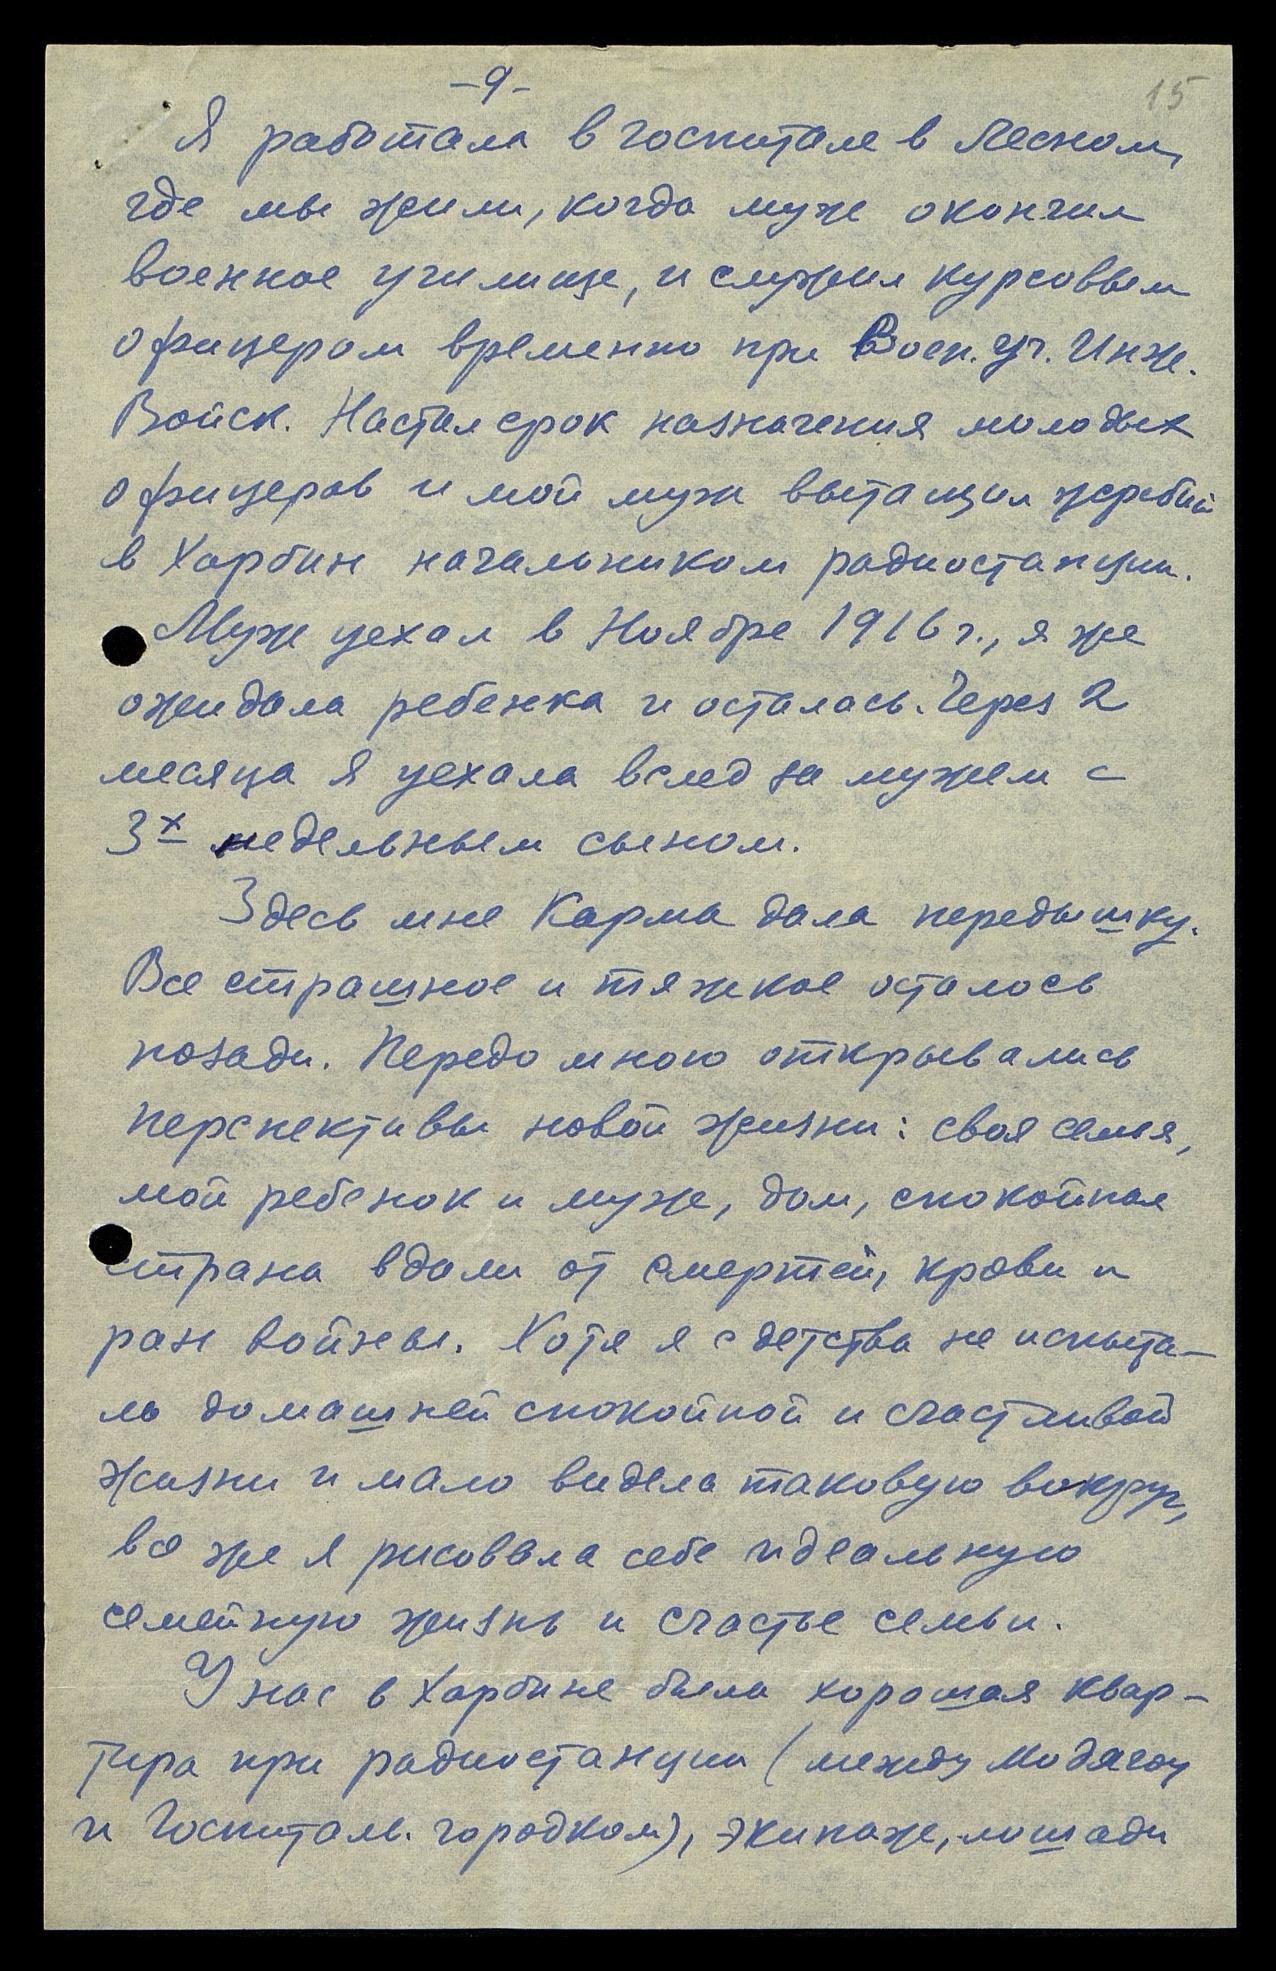 -9-
15
Я работала в госпитале в Лесном,
где мы жили, когда муж окончил
военное училище, и служил курсовым
офицером временно при Воен. Уч. Инж.
Войск. Настал срок назначения молодых
офицеров и мой муж вытащил жребий
в Харбин начальником радиостанции.
Муж уехал в Ноябре 1916 г., я же
ожидала ребенка и осталась. Через 2
месяца я уехала вслед за мужем с
3х недельным сыном.
Здесь мне Карма дала передышку.
Все страшное и тяжкое осталось
позади. Передо мною открывались
перспективы новой жизни: своя семья,
мой ребенок и муж, дом, спокойная
страна вдали от смертей, крови и
ран войны. Хотя я с детства не испыта-
ла домашней спокойной и счастливой
жизни и мало видела таковую вокруг,
все же я рисовала себе идеальную
семейную жизнь и счастье семьи.
У нас в Харбине была хорошая квар-
тира при радиостанции (между Модягоу
и Госпиталь. городком), экипаж, лошади